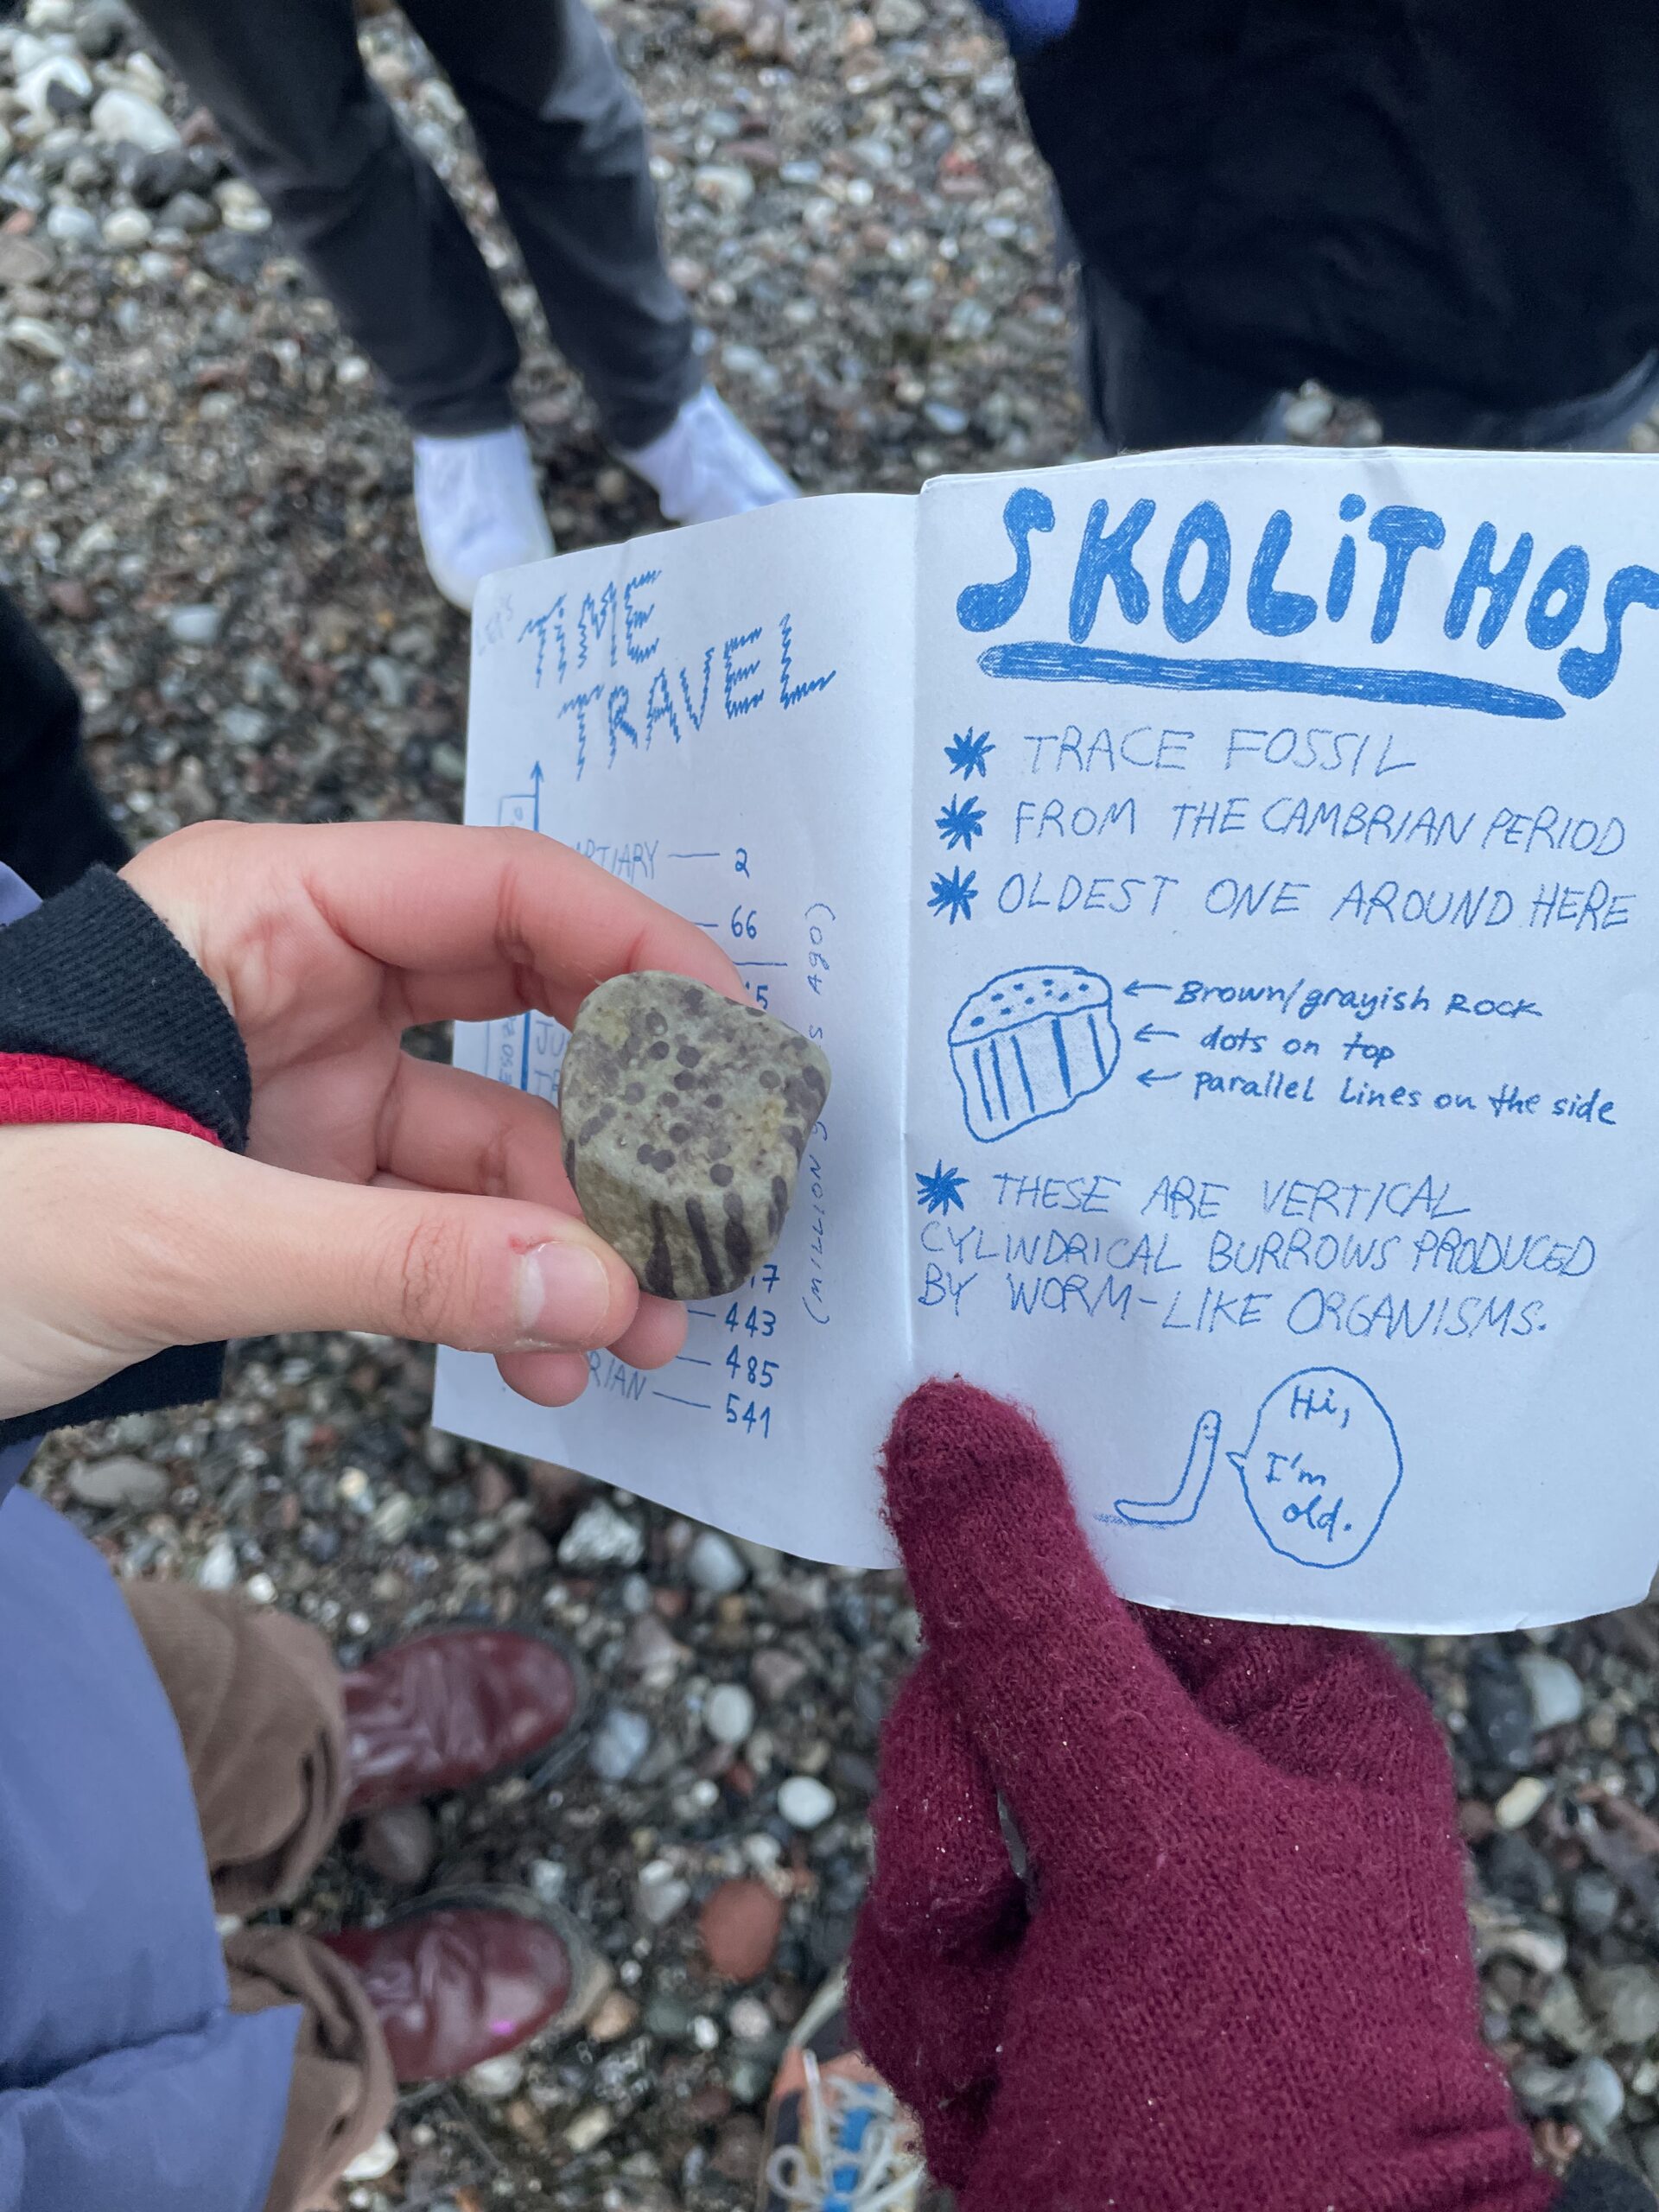 TIME
TRAVEL
2
66
443
485
541
(MILLION AGO)
SKOLITHOS
TRACE FOSSIL
FROM THE CAMBRIAN PERIOD
OLDEST ONE AROUND HERE
Brown/grayish Rock
dots on top
parallel lines on the side
THESE ARE VERTICAL
CYLINDRICAL BURROWS PRODUCED
BY WORM-LIKE ORGANISMS.
Hi,
I'm
old.